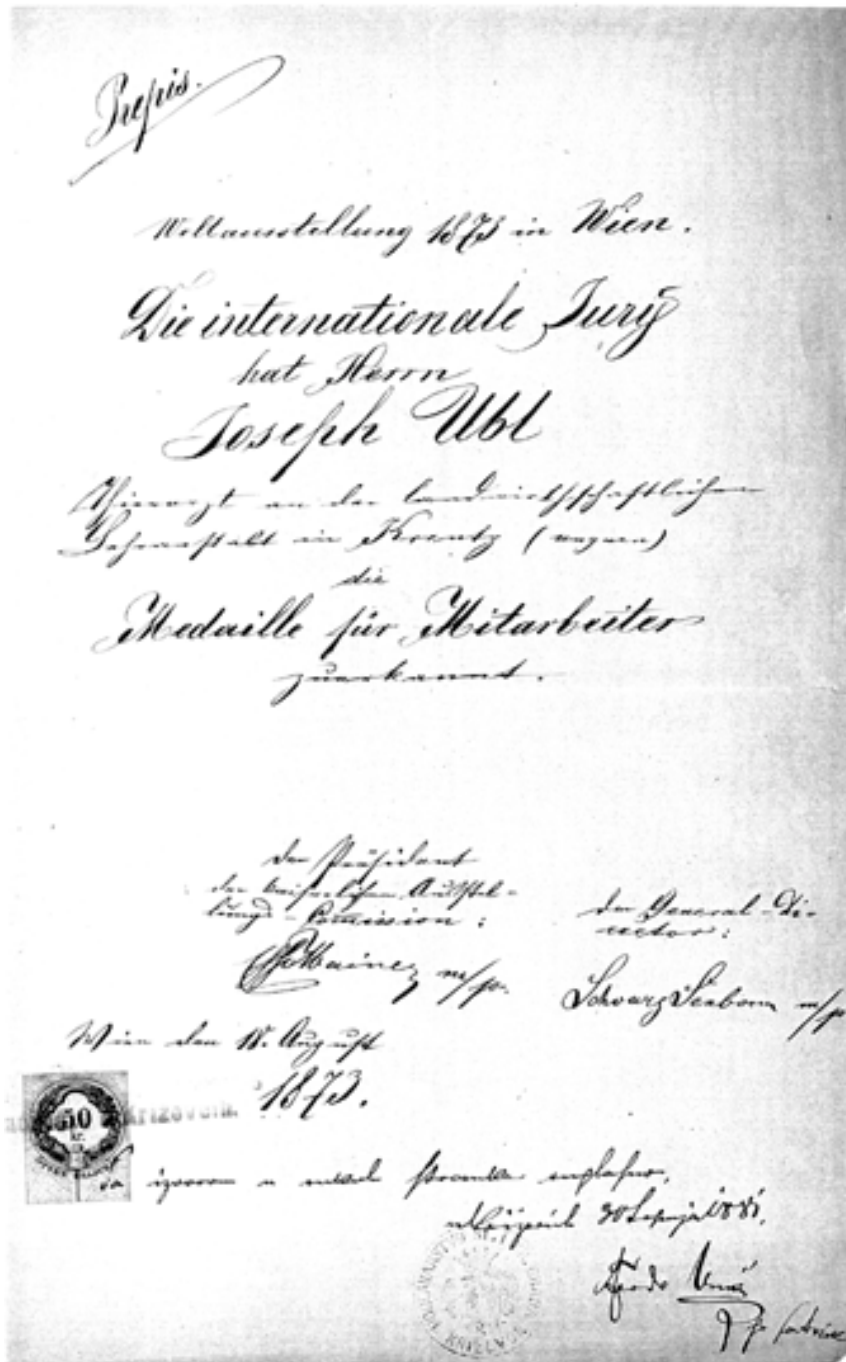 Prepis.
Weltausstellung 1873 in Wien.
Die internationale Jury
hat Herrn
Joseph Ubl
Thierarzt an der landwirthschaftlichen
Lehranstalt in Kreutz (
die
Medaille für Mitarbeiter
zuerkannt.
der Präsident
der kaiserlichen Ausstel-
lungs-Commission:
der General-Di-
rector:
m/p.
Schwarz Senborn m/p
Wien den 18. August
1873.
50
kr.